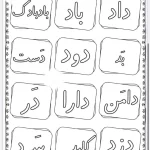 داد باد بادبادک
بَد دود دَست
دامَن دارا دَر
دزد